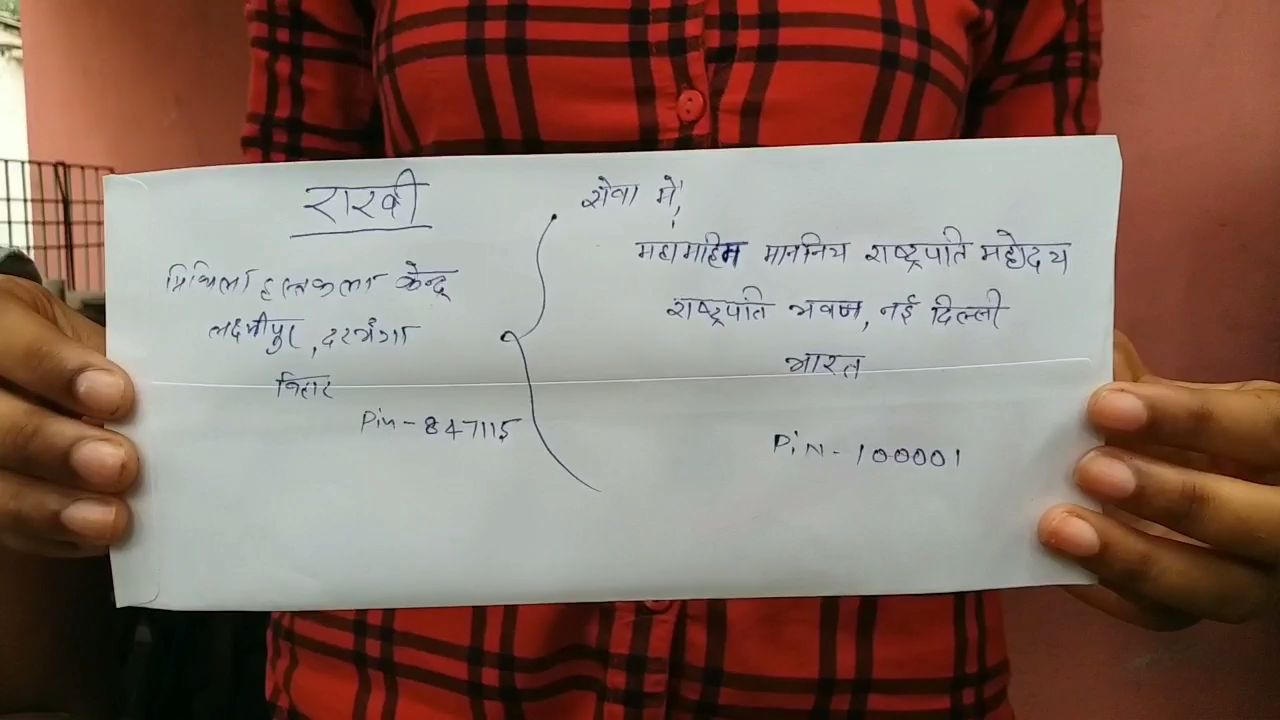 राखी
मिथिला हस्तकला केन्द्र
लक्ष्मीपुर, दरभंगा
बिहार
Pin-847115
सेवा में,
महामहिम माननिय राष्ट्रपति महोदय
राष्ट्रपति भवन, नई दिल्ली
भारत
PiN-100001